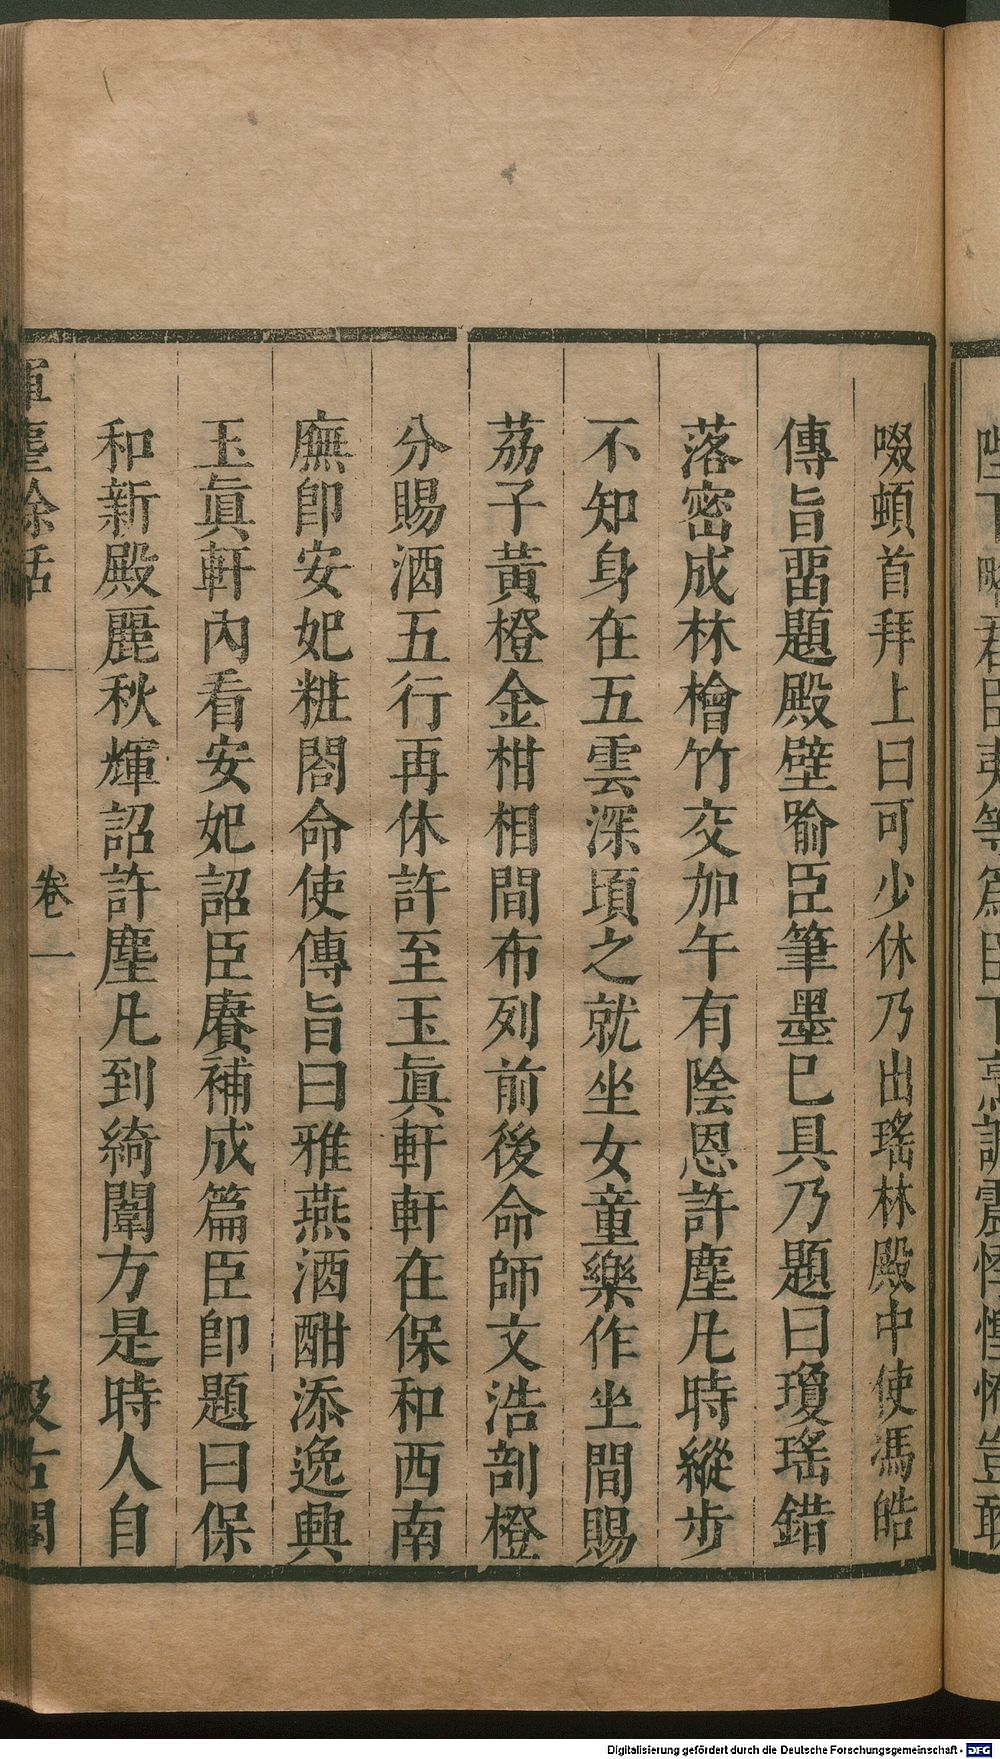 啜頓首拜上曰可少休乃出瑤林殿中使馮皓
傳旨畱題殿壁喻臣筆墨已具乃題曰瓊瑤錯
落密成林檜竹交加午有陰恩許塵凡時縱步
不知身在五雲深頃之就坐女童樂作坐間賜
荔子黃橙金柑相間布列前後命師文浩剖橙
分賜酒五行再休許至玉眞軒軒在保和西南
廡卽安妃粧閤命使傳旨曰雅燕酒酣添逸興
玉眞軒內看安妃詔臣賡補成篇臣卽題曰保
和新殿麗秋輝詔許塵凡到綺闈方是時人自
揮麈餘話
卷一
汲古閣
Digitalisierung gefördert durch die Deutsche Forschungsgemeinschaft - DFG